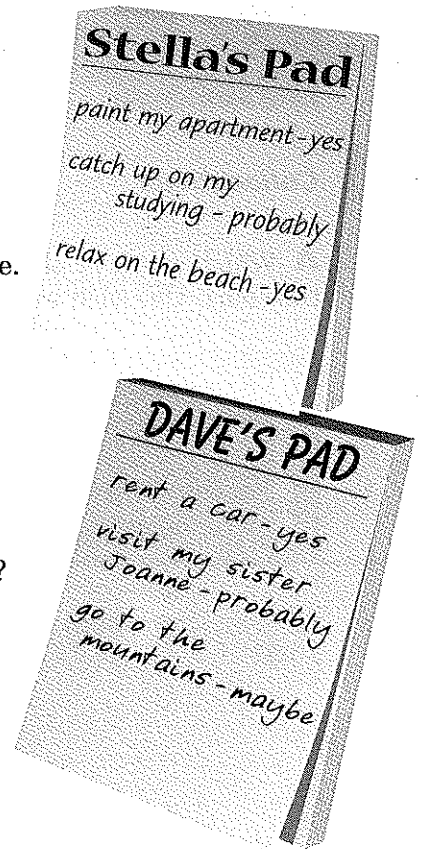 Stella's Pad
paint my apartment - yes
catch up on my
studying - probably
relax on the beach - yes
e.
DAVE'S PAD
rent a car - yes
visit my sister
Joanne - probably
?
go to the
mountains - maybe